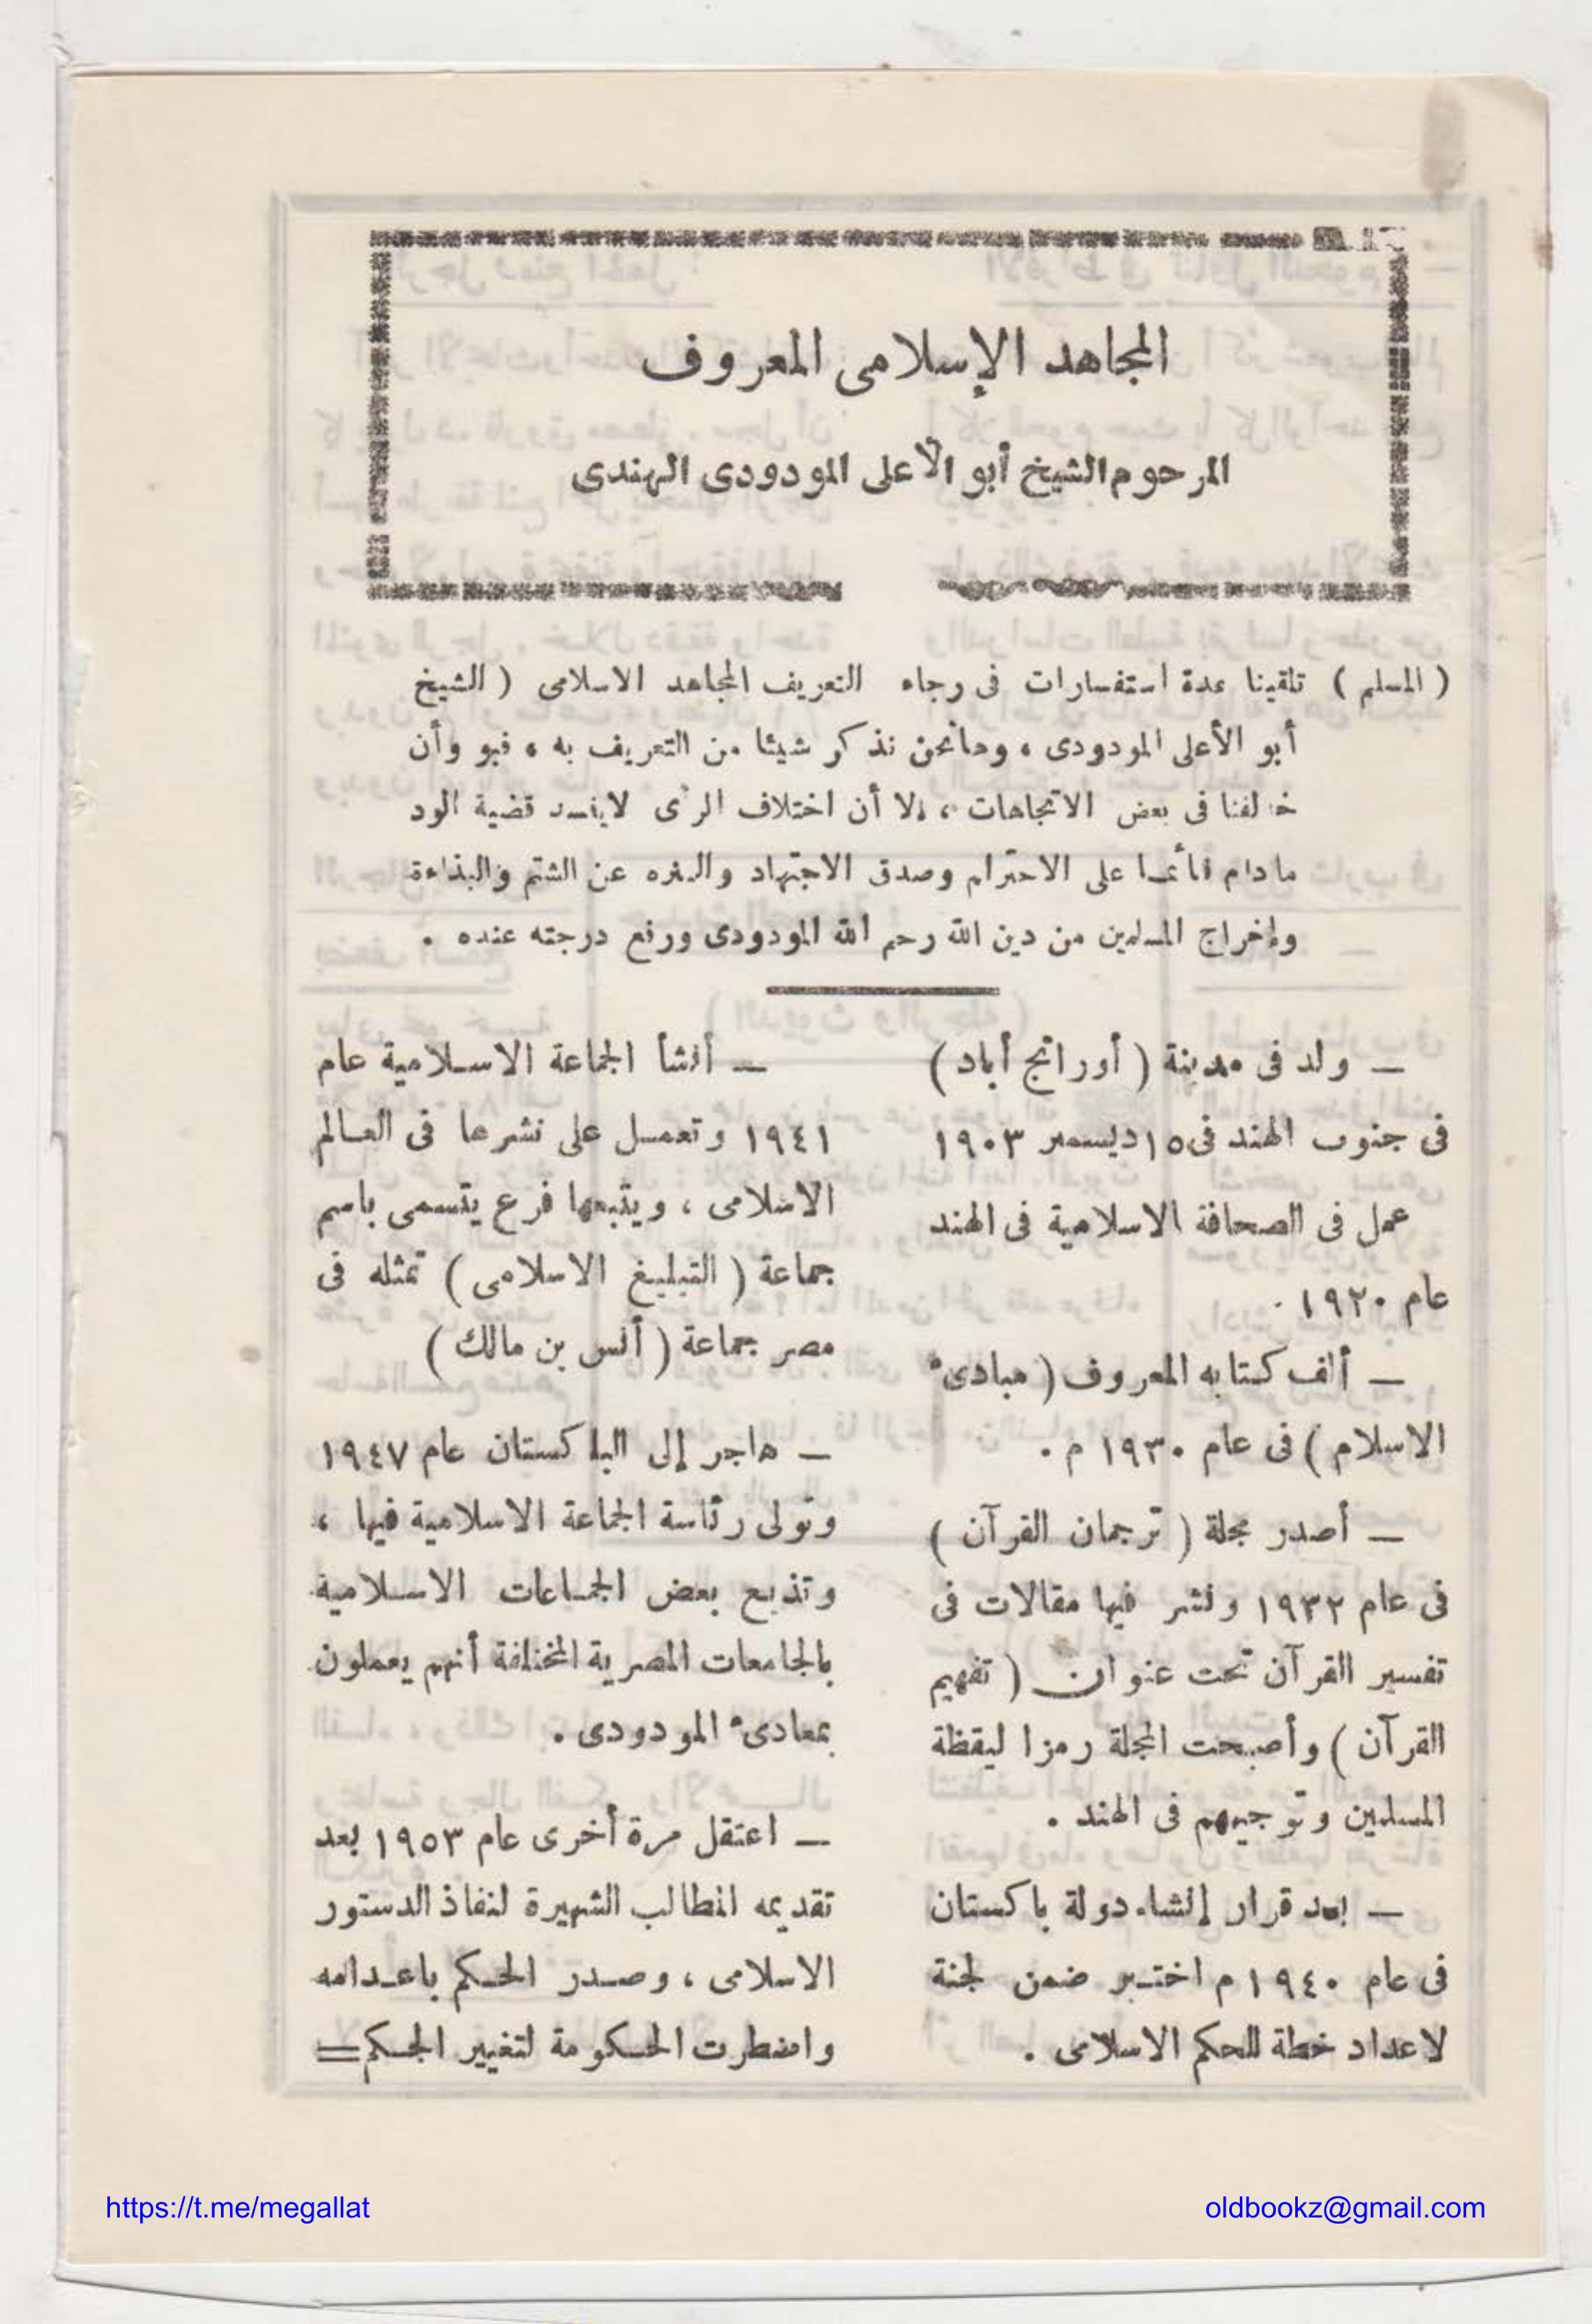 المجاهد الإسلامى المعروف
المرحوم الشيخ أبو الأعلى المودودى الهندى
( المسلم ) تلقينا عدة استفسارات فى رجاء التعريف المجاهد الاسلامى ( الشيخ
أبو الأعلى المودودى ، وهانحن نذكر شيئا من التعريف به ، فهو وأن
خالفنا فى بعض الاتجاهات ، إلا أن اختلاف الرأى لايفسد قضية الود
مادام قائما على الاحترام وصدق الاجتهاد والتنزه عن الشتم والبذاءة
وإخراج المسلمين من دين الله رحم الله المودودى ورفع درجته عنده .
— ولد فى مدينة ( أورانج أباد )
فى جنوب الهند فى ١٥ ديسمبر ١٩٠٣
عمل فى الصحافة الاسلامية فى الهند
عام ١٩٢٠ .
— ألف كتابه المعروف ( مبادىء
الاسلام ) فى عام ١٩٣٠ م .
— أصدر مجلة ( ترجمان القرآن )
فى عام ١٩٣٢ ونشر فيها مقالات فى
تفسير القرآن تحت عنوان ( تفهيم
القرآن ) وأصبحت المجلة رمزا ليقظة
المسلمين وتوجيههم فى الهند .
— بعد قرار إنشاء دولة باكستان
فى عام ١٩٤٠ م اختير ضمن لجنة
لاعداد خطة للحكم الاسلامى .
— أنشأ الجماعة الاسلامية عام
١٩٤١ وتعمل على نشرها فى العالم
الاسلامى ، ويتبعها فرع يتسمى باسم
جماعة ( التبليغ الاسلامى ) تمثله فى
مصر جماعة ( أنس بن مالك )
— هاجر إلى الباكستان عام ١٩٤٧
وتولى رئاسة الجماعة الاسلامية فيها ،
وتذيع بعض الجماعات الاسلامية
بالجامعات المصرية المختلفة أنهم يعملون
بمبادىء المودودى .
— اعتقل مرة أخرى عام ١٩٥٣ بعد
تقديمه المطالب الشهيرة لنفاذ الدستور
الاسلامى ، وصدر الحكم باعدامه
واضطرت الحكومة لتغيير الحكم =
https://t.me/megallat
oldbookz@gmail.com